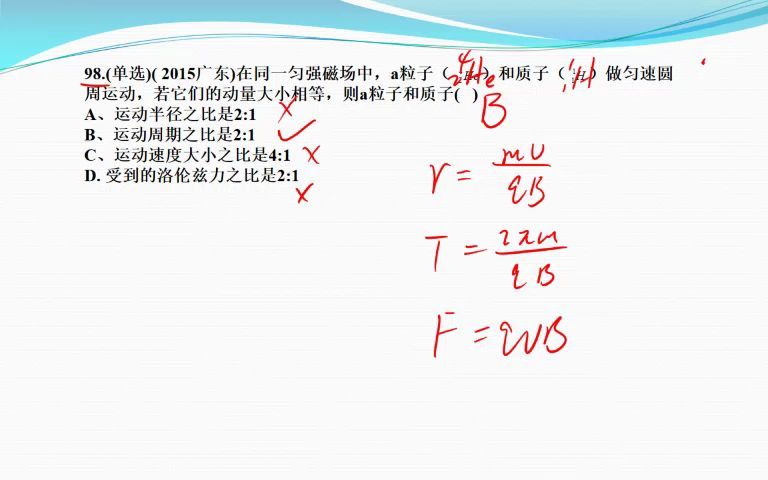 98.(单选)( 2015广东)在同一匀强磁场中，a粒子（⁴₂He）和质子（¹₁H）做匀速圆
周运动，若它们的动量大小相等，则a粒子和质子( )
B
A、运动半径之比是2:1 ×
B、运动周期之比是2:1 ✓
C、运动速度大小之比是4:1 ×
D. 受到的洛伦兹力之比是2:1 ×
r = mv/qB
T = 2πm/qB
F = qvB